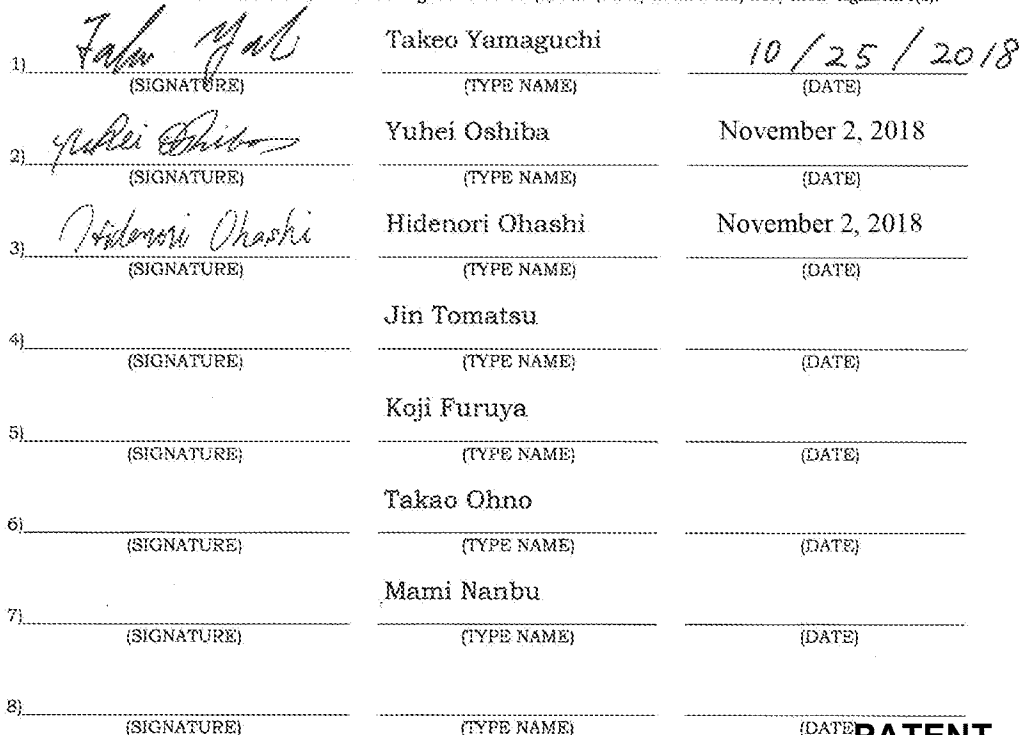 Takeo Yamaguchi 10/25/2018
1)
(SIGNATURE) (TYPE NAME) (DATE)
Yuhei Oshiba Yuhei Oshiba November 2, 2018
2)
(SIGNATURE) (TYPE NAME) (DATE)
Hidenori Ohashi Hidenori Ohashi November 2, 2018
3)
(SIGNATURE) (TYPE NAME) (DATE)
Jin Tomatsu
4)
(SIGNATURE) (TYPE NAME) (DATE)
Koji Furuya
5)
(SIGNATURE) (TYPE NAME) (DATE)
Takao Ohno
6)
(SIGNATURE) (TYPE NAME) (DATE)
Mami Nanbu
7)
(SIGNATURE) (TYPE NAME) (DATE)
8)
(SIGNATURE) (TYPE NAME) (DATE)
PATENT